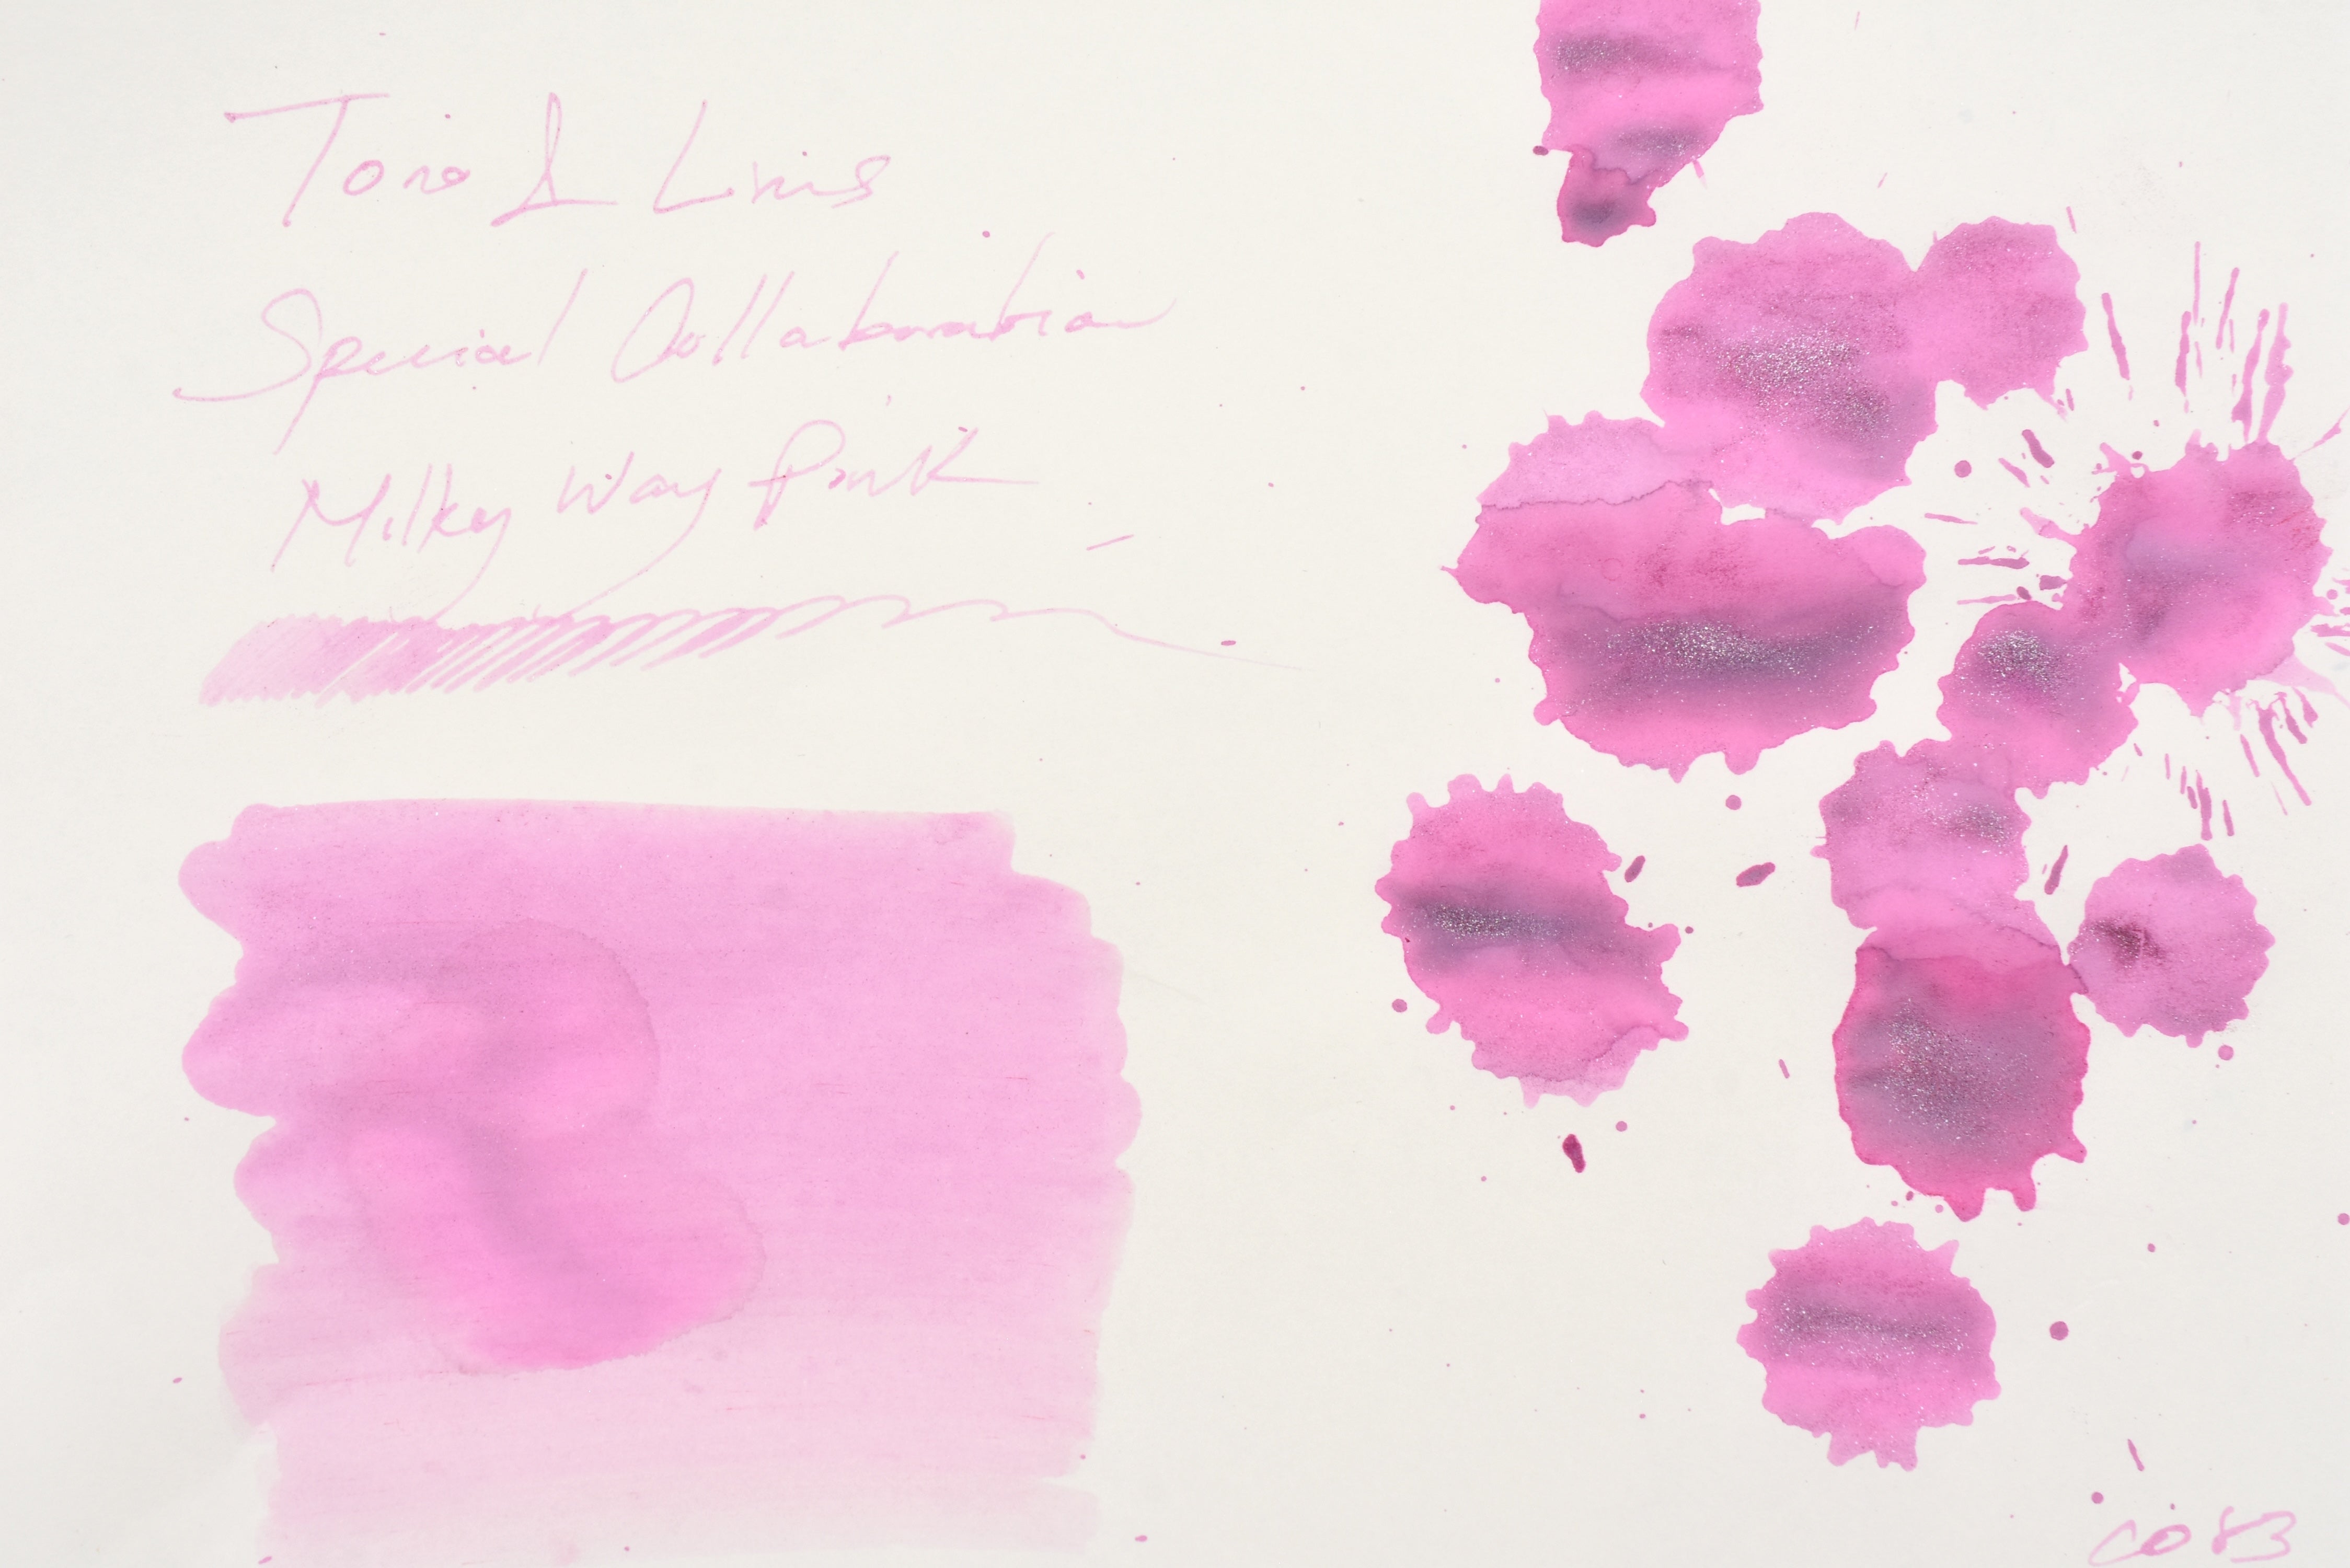 Tono & Lims
Special Collaboration
Milky Way Pink
CO 83